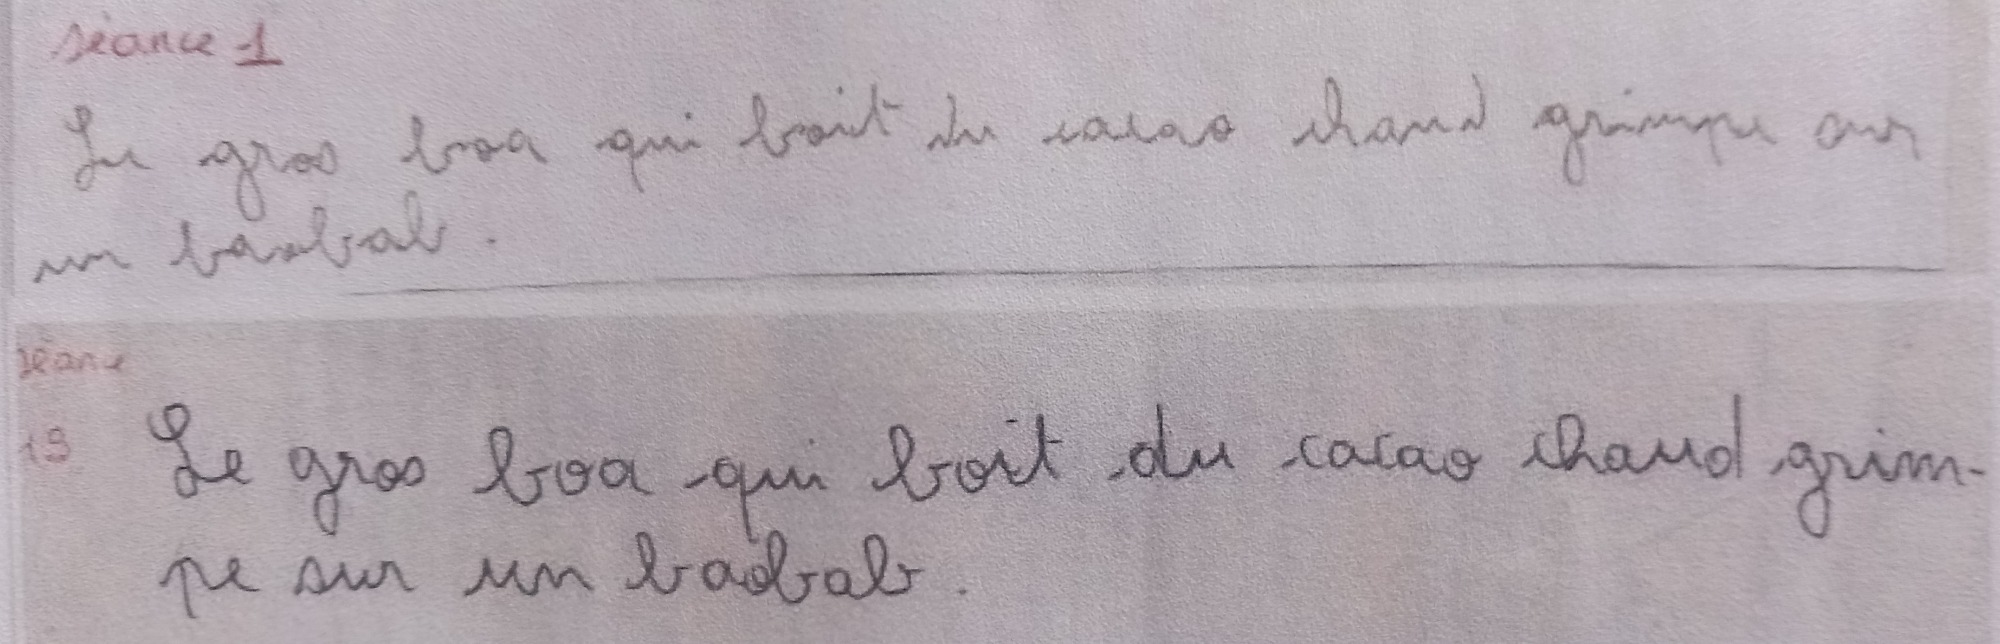 séance 1
Le gros boa qui boit du cacao chaud grimpe sur
un baobab.
séance
19
Le gros boa qui boit du cacao chaud grim-
pe sur un baobab.